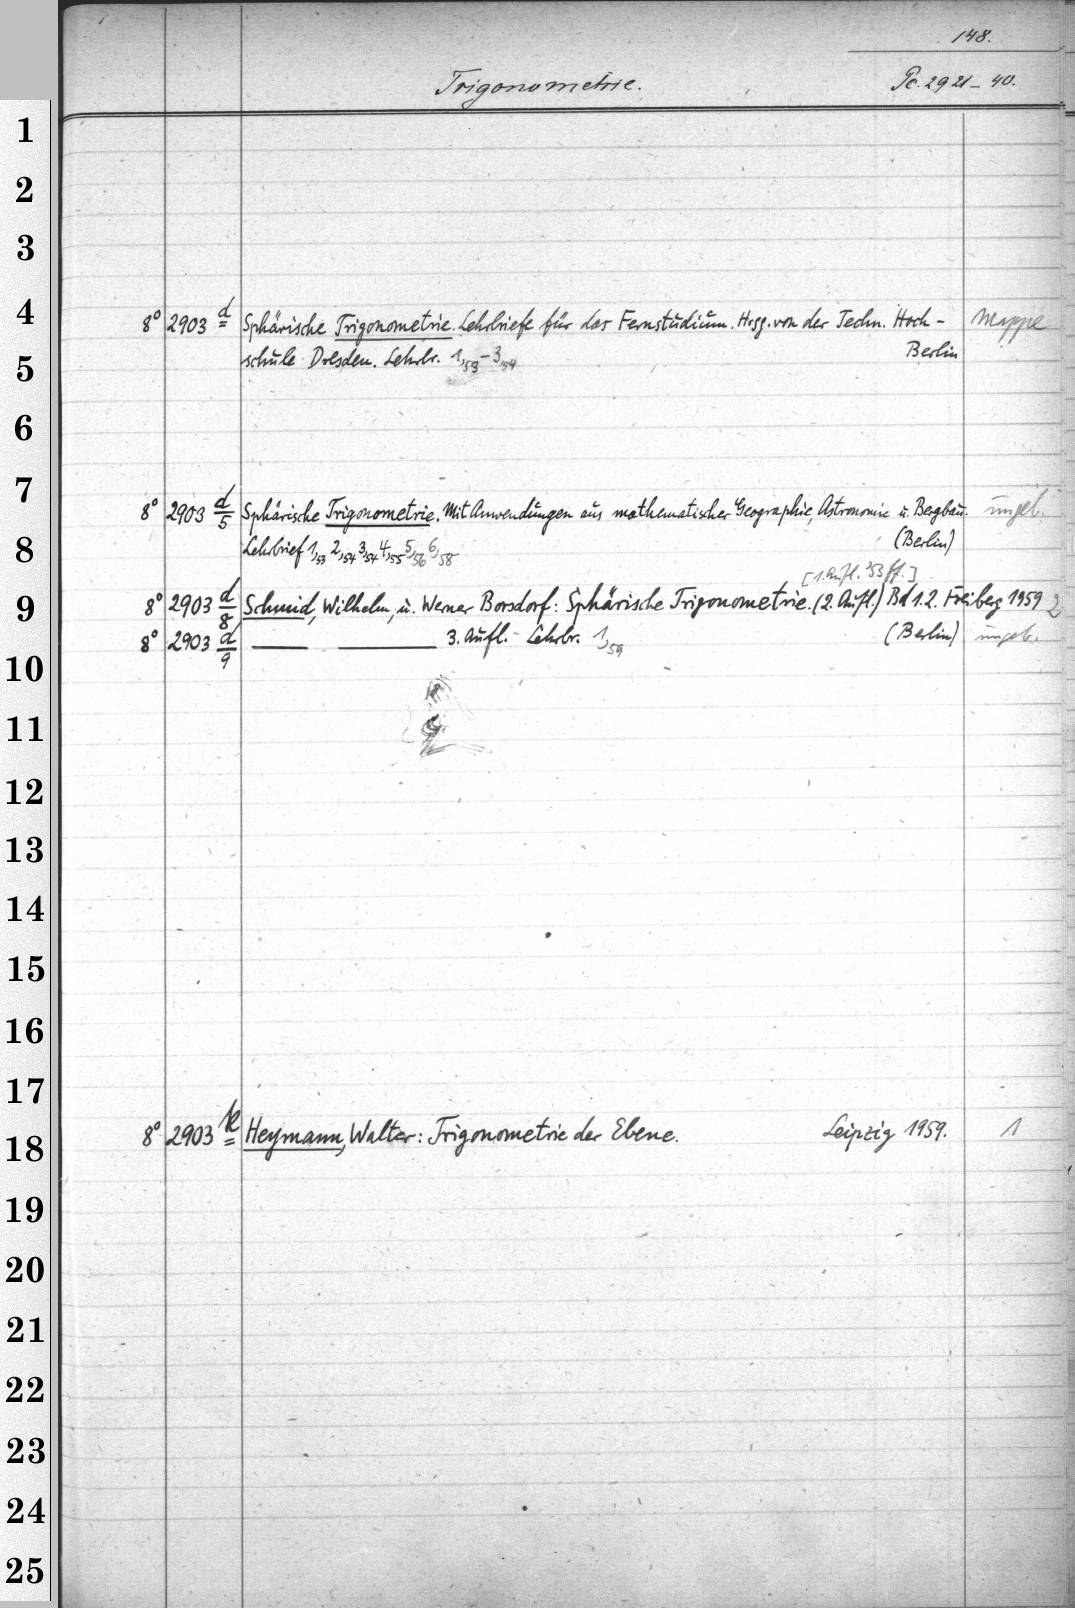 148.
Trigonometrie. Pc. 2921-40.
1
2
3
4
8° 2903 d Sphärische Trigonometrie. Lehrbriefe für das Fernstudium. Hrsg. von der Techn. Hoch- Mappe
5
schule Dresden. Lehrbr. 1,53-3,54 Berlin
6
7
8° 2903 d/5 Sphärische Trigonometrie. Mit Anwendungen aus mathematischer Geographie, Astronomie u. Bergbau. ungeb.
8
Lehrbrief 1,53 2,54 3,54 4,55 5,56 6,58 (Berlin)
[1. Aufl. '53 ff.]
9
8° 2903 d/8 Schmid, Wilhelm, u. Werner Borsdorf: Sphärische Trigonometrie. (2. Aufl.) Bd 1.2. Freiberg 1959 2
8° 2903 d/9 3. Aufl. - Lehrbr. 1,59 (Berlin) ungeb.
10
11
12
13
14
15
16
17
8° 2903 k Heymann, Walter: Trigonometrie der Ebene. Leipzig 1959. 1
18
19
20
21
22
23
24
25